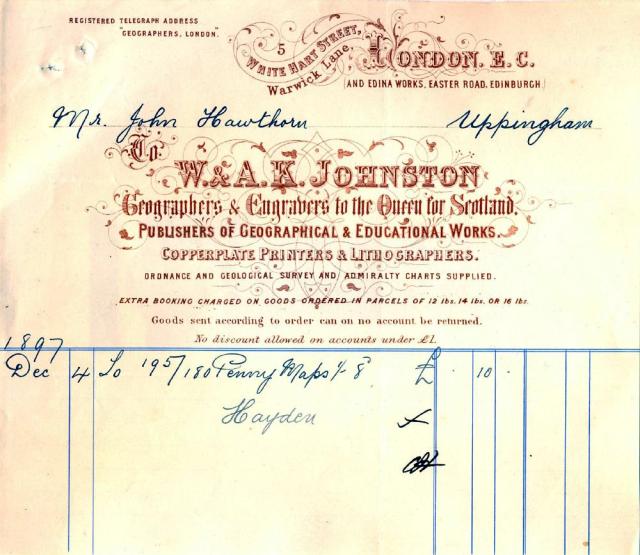 REGISTERED TELEGRAPH ADDRESS
"GEOGRAPHERS, LONDON."
5
WHITE HART STREET,
Warwick Lane,
LONDON. E. C.
(AND EDINA WORKS, EASTER ROAD, EDINBURGH)
Mr. John Hawthorn Uppingham
To
W. & A. K. JOHNSTON
Geographers & Engravers to the Queen for Scotland.
PUBLISHERS OF GEOGRAPHICAL & EDUCATIONAL WORKS.
COPPERPLATE PRINTERS & LITHOGRAPHERS.
ORDNANCE AND GEOLOGICAL SURVEY AND ADMIRALTY CHARTS SUPPLIED.
EXTRA BOOKING CHARGED ON GOODS ORDERED IN PARCELS OF 12 lbs. 14 lbs. OR 16 lbs.
Goods sent according to order can on no account be returned.
No discount allowed on accounts under £1.
1897
Dec 4 To 195/180 Penny Maps 8 £ 10
Hayden